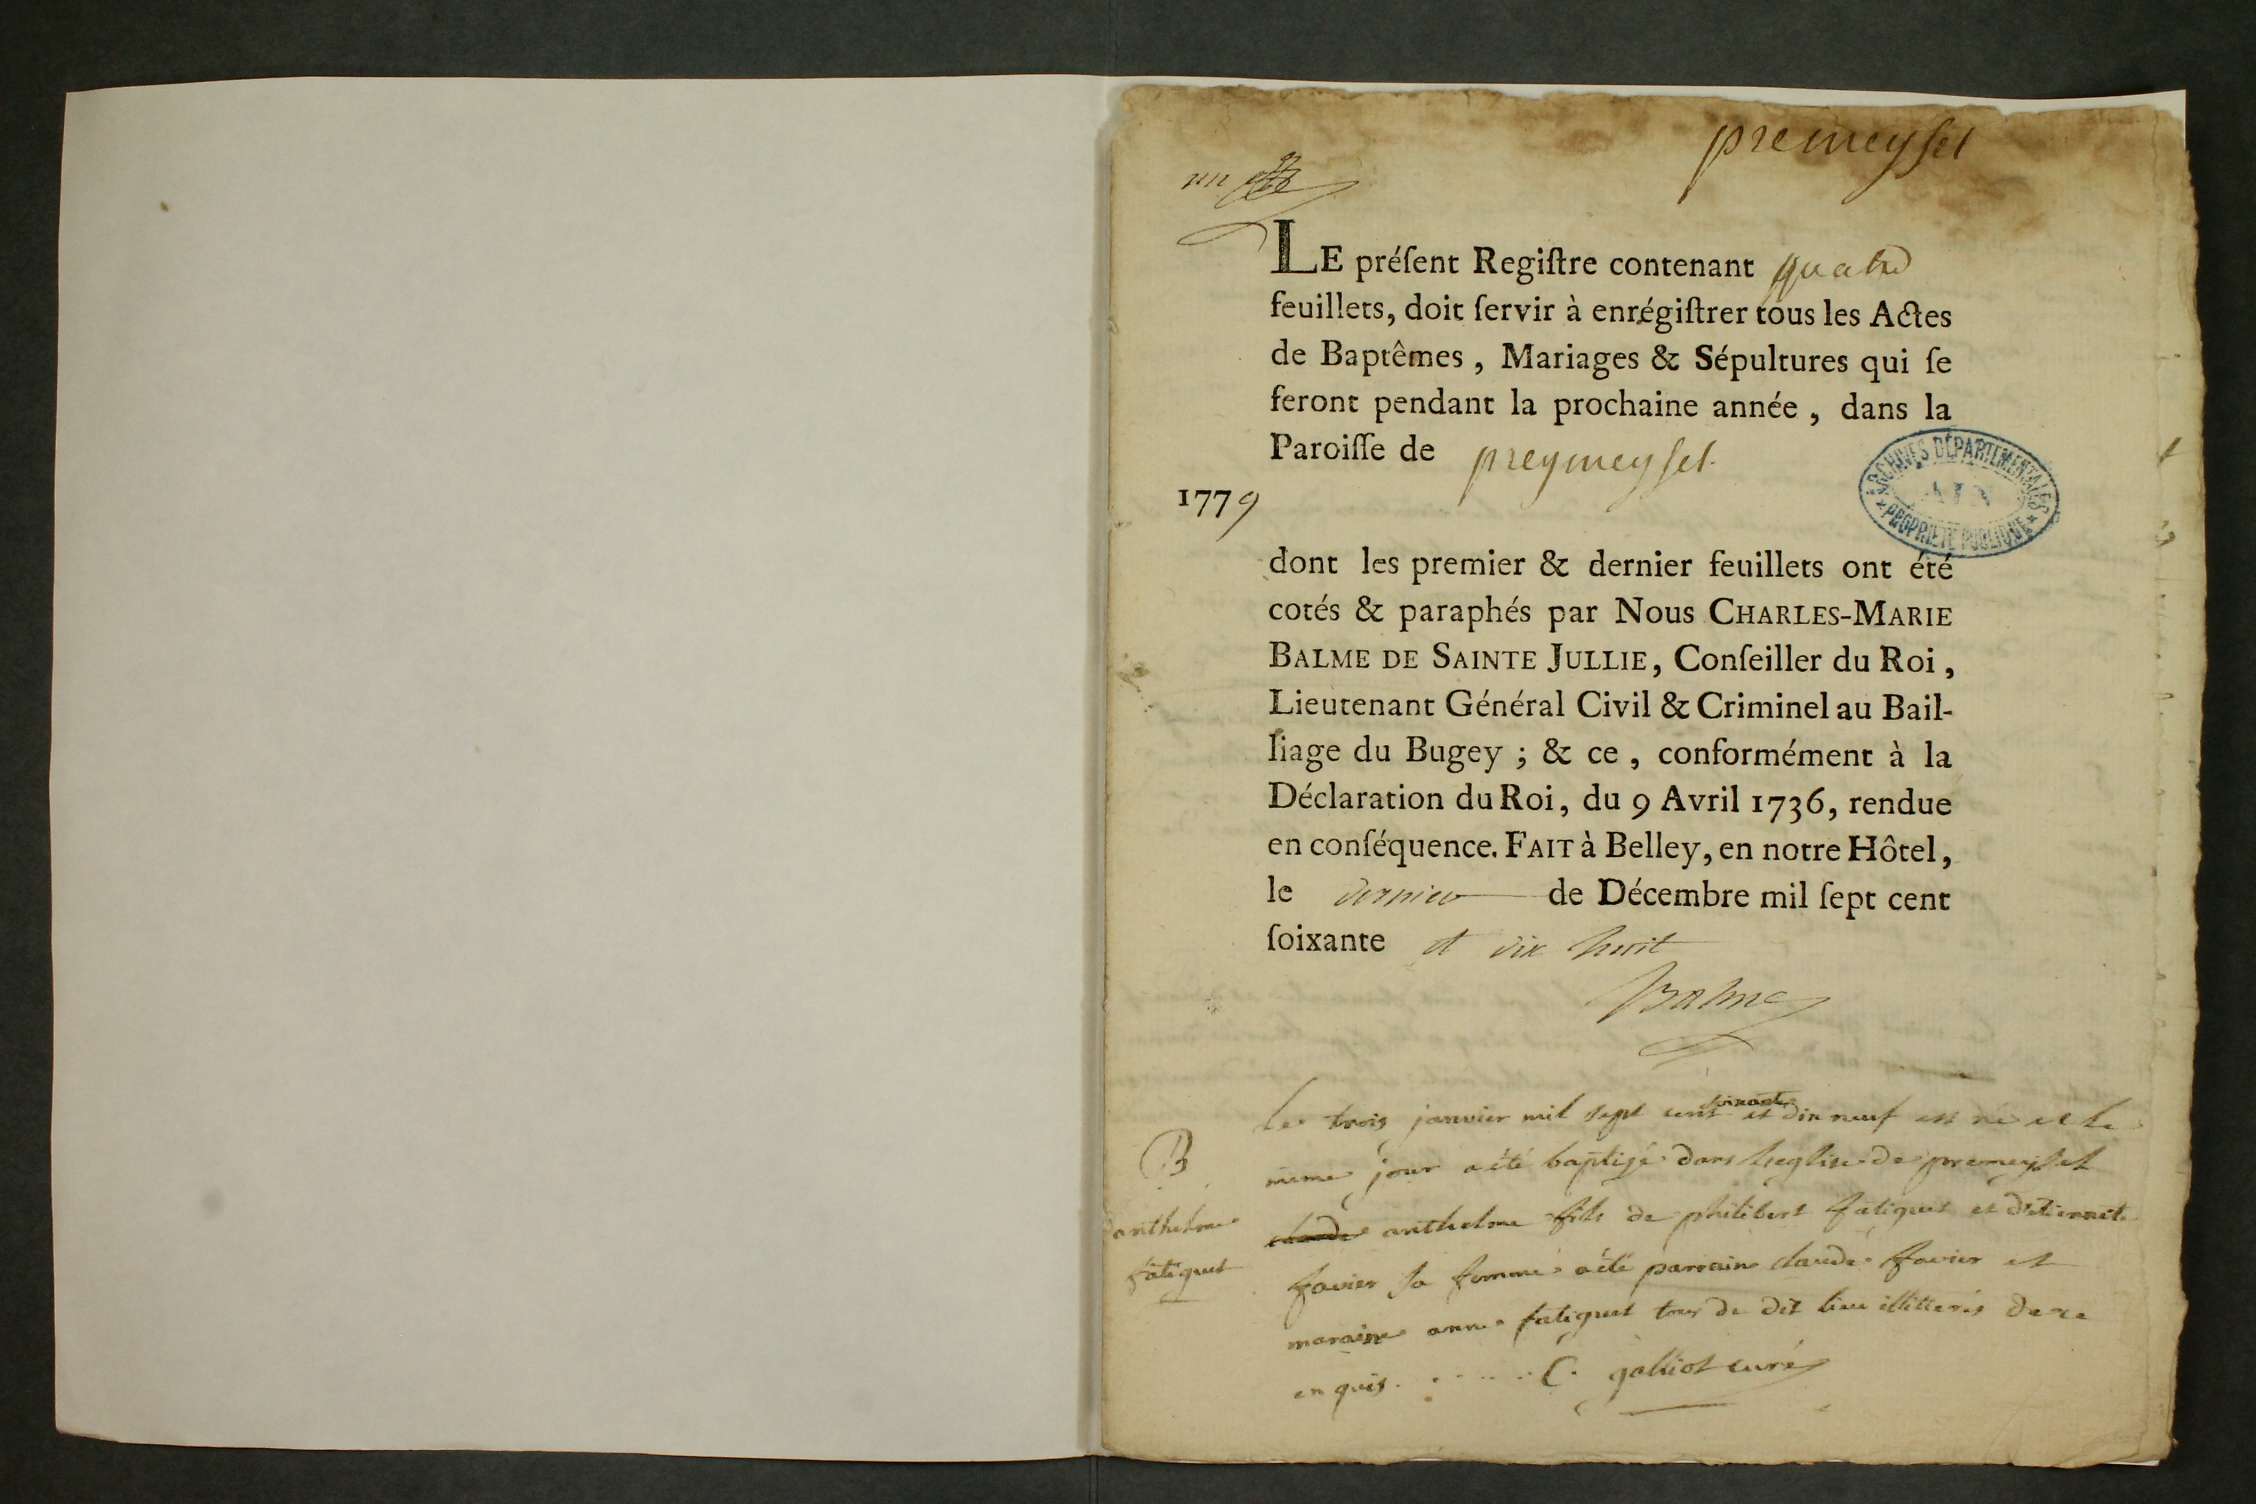 premeysel
un
LE préſent Regiſtre contenant quatre
feuillets, doit ſervir à enrégiſtrer tous les Actes
de Baptêmes, Mariages & Sépultures qui ſe
feront pendant la prochaine année, dans la
Paroiſſe de preymeysel
ARCHIVES DÉPARTEMENTALES
AIN
PROPRIÉTÉ PUBLIQUE
1779
dont les premier & dernier feuillets ont été
cotés & paraphés par Nous CHARLES-MARIE
BALME DE SAINTE JULLIE, Conſeiller du Roi,
Lieutenant Général Civil & Criminel au Bail-
liage du Bugey; & ce, conformément à la
Déclaration du Roi, du 9 Avril 1736, rendue
en conſéquence. FAIT à Belley, en notre Hôtel,
le dernier de Décembre mil ſept cent
ſoixante et dix huit
Balme
soixante
Le trois janvier mil sept cent et dix neuf est né et le
B
meme jour a été baptisé dans l'eglise de premeysel
anthelme
claude anthelme fils de philibert fatiguet et d'etiennete
fatiguet
favier sa femme a été parrain claude favier et
maraine anne fatiguet tous de dit lieu illitterés de ce
enquis. C. galliot curé